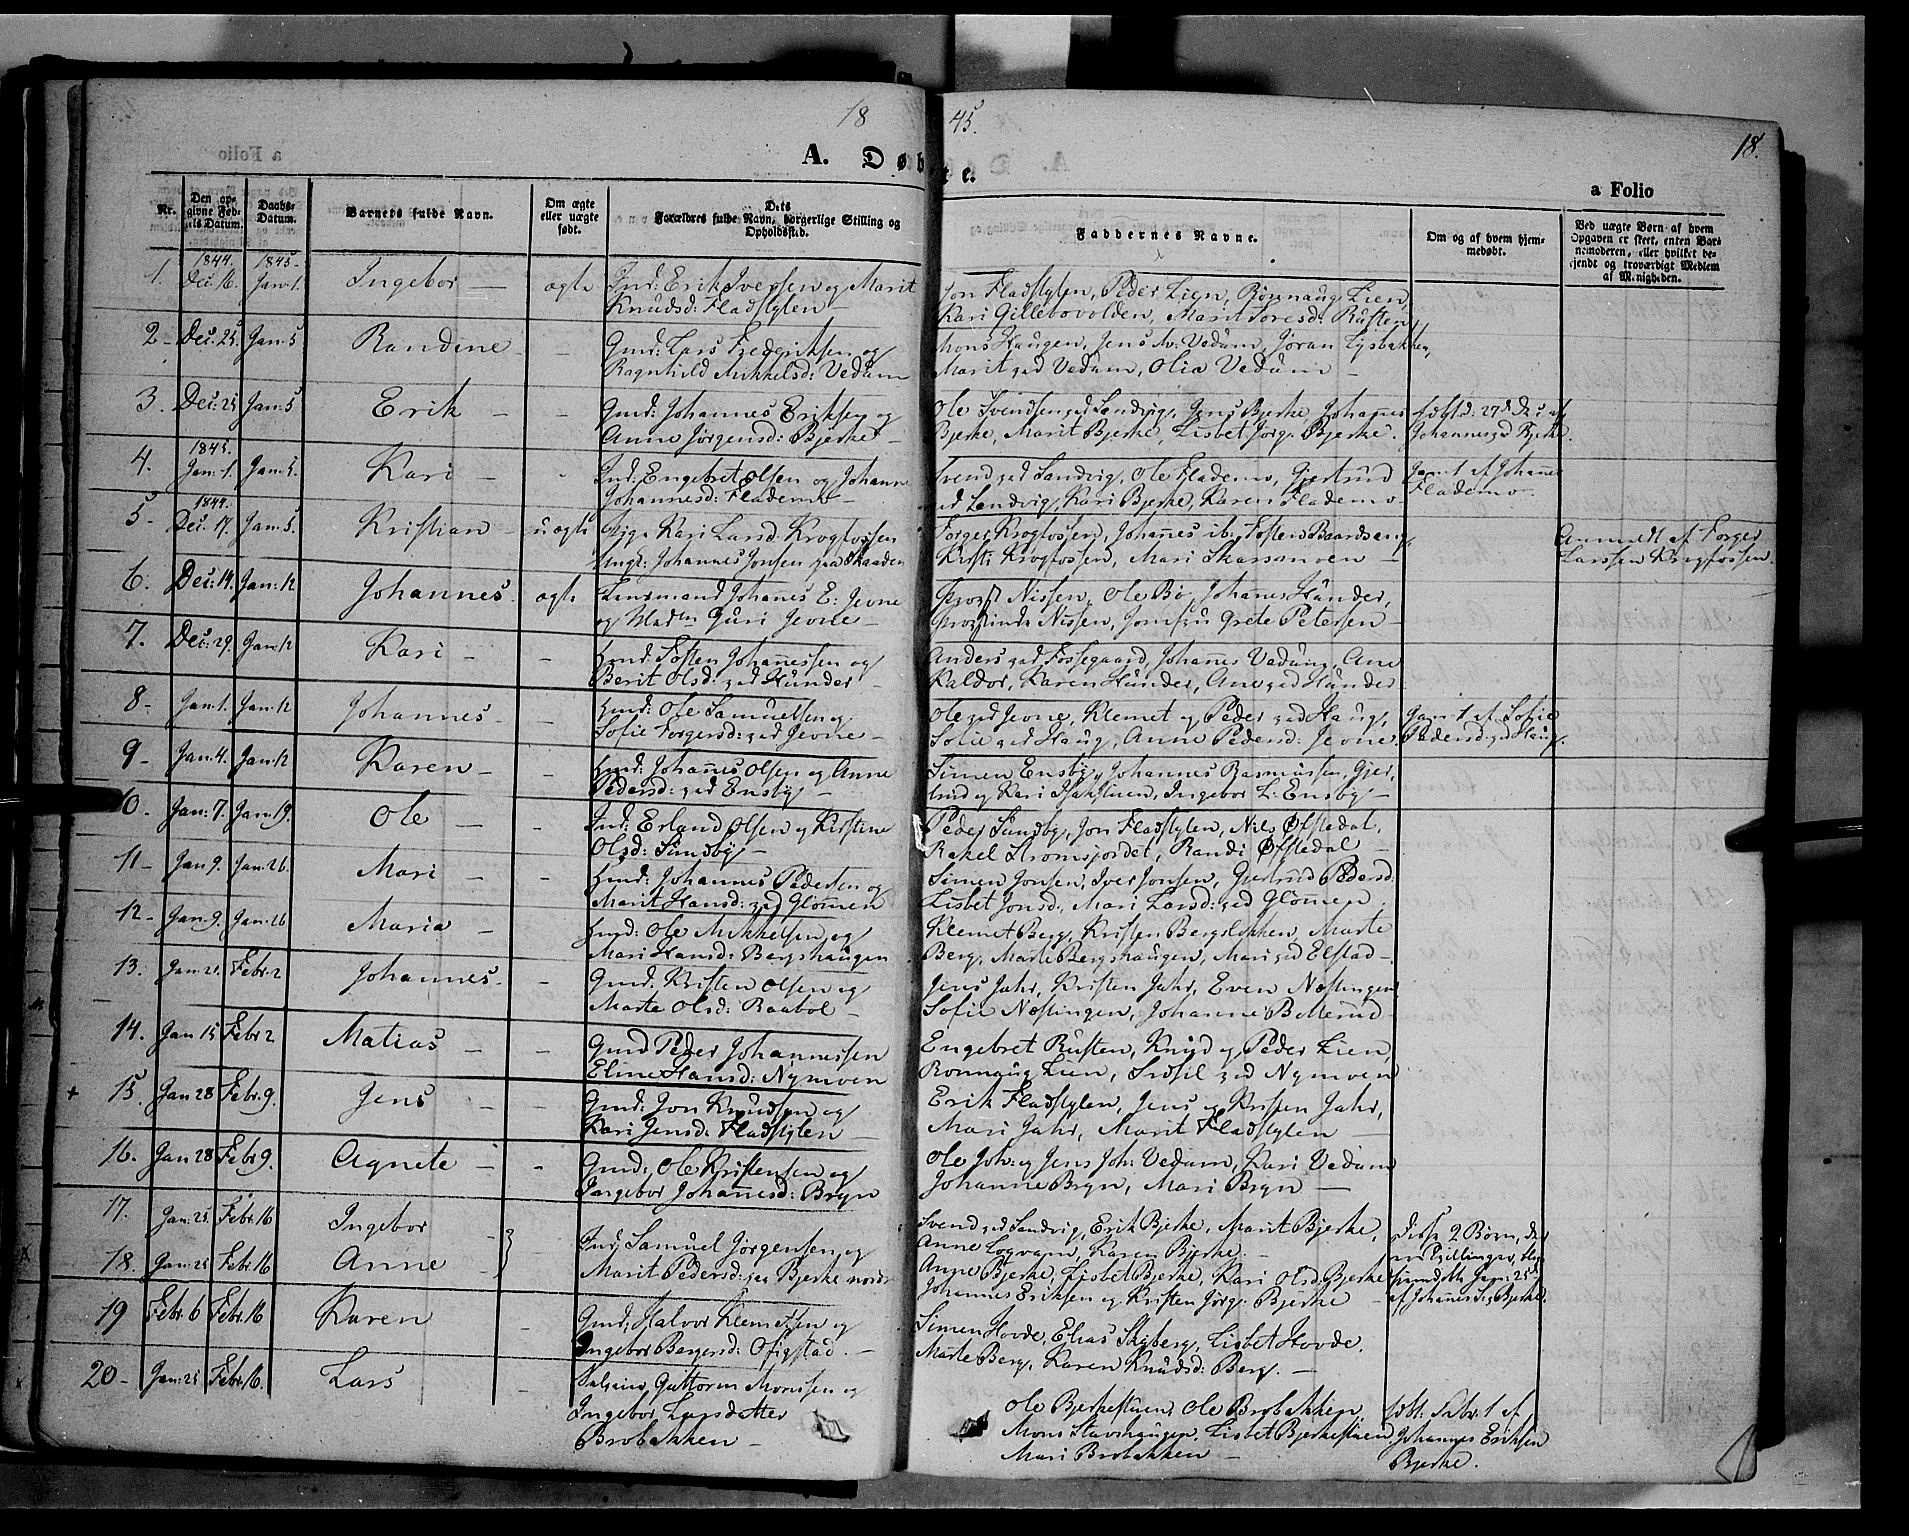 18 45.
18.
A. Døbte.
a Folio
Nr.
Den opgivne Fødsels Datum.
Daabs-Datum.
Barnets fulde Navn.
Om ægte eller uægte født.
Dets Forældres fulde Navn, borgerlige Stilling og Opholdssted.
Faddernes Navne.
Om og af hvem hjemmedøbt.
Ved uægte Børn af hvem Opgaven er skeet, enten Barnemoderen, eller hvilket bekjendt og troværdigt Medlem af Menigheden.
1. 1844. Dec. 16. 1845. Jan. 1. Ingebor ægte Ind: Erik Iversen og Marit
Knudsd: Fladstylen
Jon Fladstylen, Peder Lien, Rønnaug Lien,
Kari Gillebovolden, Marit Toresd: Rusten
2 Dec: 25. Jan: 5 Randine Gmd: Lars Fredriksen og
Ragnhild Mikkelsd: Vedum
Mons Haugen, Jens Vedum, Jøran Lysbakken,
Marit Vedum, Olia Vedum
3. Dec: 25 Jan: 5 Erik Gmd: Johannes Eriksen og
Anne Jørgensd: Bjerke
Ole Svendsen Sandvig, Jens Bjerke, Johannes
Bjerke, Marit Bjerke, Lisbet Jørg: Bjerke.
døbt d: 27d Dec af
Johannes Bjerke.
4. 1845. Jan. 1. Jan: 5. Kari Ind: Engebret Olsen og Johanne
Johannesd: Flademo
Svend Sandvig, Ole Flademo, Gjertrud
Sandvig, Kari Bjerke, Karen Flademo
Jan: 1 af Johannes
Flademo
5 1844. Dec: 17. Jan: 5. Kristian uægte Pige Kari Larsd. Krogfossen
Ungk: Johannes Jonsen Skaaden
Torger Krogfossen, Johannes ib., Tosten Baardseng
Kirsti Krogfossen, Mari Skarsmoen
Anmeldt af Torger
Larssen Krogfossen.
6. Dec: 14. Jan: 12 Johannes. ægte Lensmand Johannes E: Jevne
og Madm Guri Jevne
Provst Nissen, Ole Bø, Johannes Hunder,
Provstinde Nissen, Jomfru Grete Petersen
7. Dec: 29. Jan: 12 Kari Hmd: Tosten Johannessen og
Berit Olsd: Hunder
Anders Fossegaard, Johannes Vedum, Ane
Kaldor, Karen Hunder, Ane Hunder
8 Jan: 1. Jan: 12 Johannes Hmd: Ole Samuelsen og
Sofie Torgersd: Jevne
Ole Jevne, Klemet og Peder Haug,
Sofie Haug, Anne Pedersd: Jevne.
Jan: 1 af Sofie
Pedersd: Haug.
9 Jan: 4. Jan: 12 Karen Hmd: Johannes Olsen og Anne
Pedersd: Ensby
Simen Ensby, Johannes Rasmussen, Gjer
trud og Kari, Ingebor L: Ensby
10. Jan: 7. Jan: 19. Ole Ind: Erland Olsen og Kirstine
Olsd: Sundby
Peder Sundby, Jon Fladstylen, Nils Øfstedal,
Rakel Strømsjordet, Randi Øfstedal
11 Jan: 9. Jan: 26. Mari Hmd: Johannes Pedersen og
Marit Hansd: Glømmen
Simen Jonsen, Iver Jonsen, Gjertrud Pedersd:
Lisbet Jonsd:, Mari Larsd: Glømmen.
12 Jan: 9. Jan: 26 Maria Hmd: Ole Mikkelsen og
Mari Hansd: Bergshaugen
Klemet Berg, Kristen Bergsløkken, Marte
Berg, Marte Bergshaugen, Mari Elstad
13. Jan: 21. Febr: 2 Johannes. Gmd: Kristen Olsen og
Marte Olsd: Raabøl
Jens Jahr, Kristen Jahr, Even Nøstingen
Sofie Nøstingen, Johanne Belterud
14. Jan 15 Febr 2 Matias Gmd Peder Johannessen
Eline Hansd: Nymoen
Engebret Rusten, Knud og Peder Lien,
Rønnaug Lien, Nymoen
+ 15. Jan 28 Febr 9. Jens Gmd: Jon Knudsen og
Kari Jensd: Fladstylen
Erik Fladstylen, Jens og Kristen Jahr,
Mari Jahr, Marit Fladstylen
16. Jan 28 Febr 9. Agnete Gmd: Ole Kristensen og
Ingebor Johannesd: Bryn
Ole Joh: og Jens Joh: Vedum, Kari Vedum
Johanne Bryn, Mari Bryn
17. Jan: 25. Febr. 16 Ingebor
18. Jan: 25 Febr. 16 Anne
Ind: Samuel Jørgensen og
Marit Pedersd: Bjerke nordre
Svend Sandvig, Erik Bjerke, Marit Bjerke,
Anne Løgvam, Karen Bjerke.
Anne Bjerke, Lisbet Bjerke, Kari Olsd. Bjerke
Johannes Eriksen og Kristen Jørg: Bjerke
Disse 2 Børn, der
ere Tvillinger, blev
hjemdøbte Jan: 25d
af Johannes Bjerke.
19 Febr. 6 Febr. 16 Karen Gmd: Halvor Klemetsen og
Ingebor Bergersd: Ofigstad.
Simen Hovde, Elias Skyberg, Lisbet Hovde,
Marte Berg, Karen Knudsd: Berg.
20 Jan: 25 Febr. 16. Lars Guttorm Monssen og
Ingebor Larsdatter
Brobakken
Ole Bjerkestuen, Ole Brobakken,
Mons Stavshaugen, Lisbet Bjerkestuen,
Mari Brobakken
døbt Febr: 1 af
Johannes Eriksen
Bjerke.